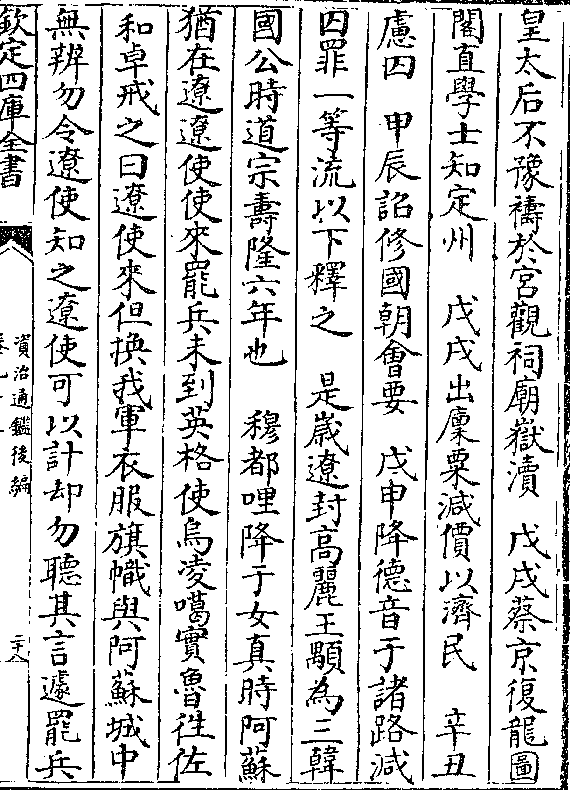 皇太后不豫禱於宮觀祠廟嶽瀆　戊戌蔡京復龍圖
閣直學士知定州　戊戌出廩粟減價以濟民　辛丑
慮囚　甲辰詔修國朝會要　戊申降德音于諸路減
囚罪一等流以下釋之　是嵗遼封高麗王顒為三韓
國公時道宗壽隆六年也　穆都哩降于女真時阿蘇
猶在遼遼使使來罷兵未到英格使烏凌噶實魯徃佐
和卓戒之曰遼使來但換我軍衣服旗幟與阿蘇城中
無辨勿令遼使知之遼使可以計却勿聽其言遽罷兵
欽定四庫全書
資治通鑑後編
二十八